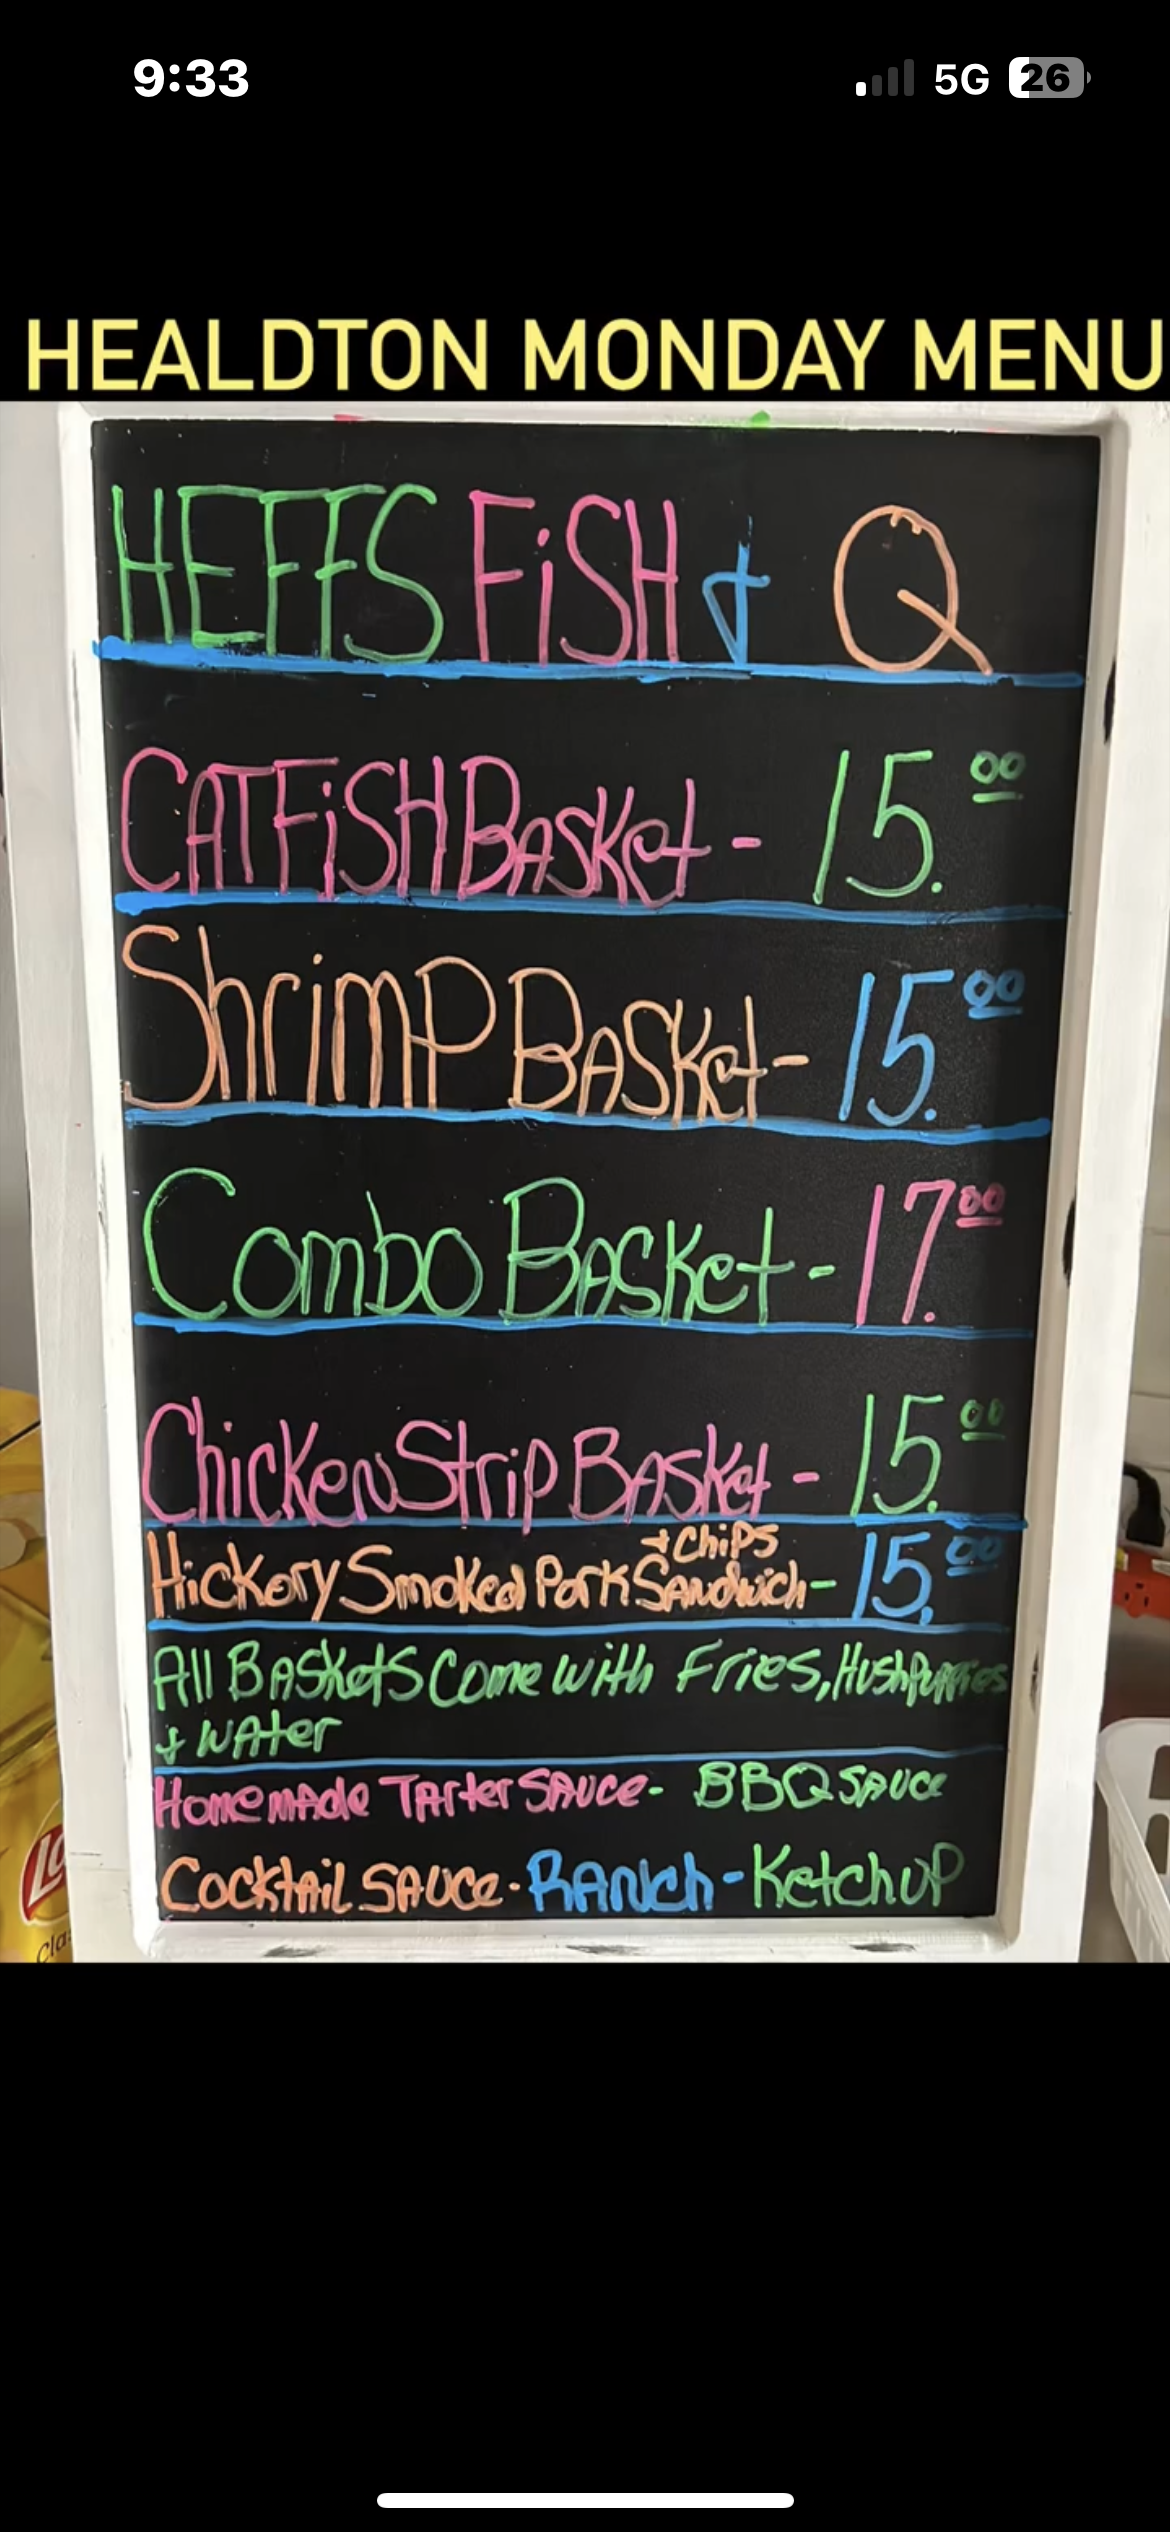 9:33 5G 26
HEALDTON MONDAY MENU
HEFFS FiSH & Q
CATFiSH BASKet - 15.00
ShrimP BASKet - 15.00
Combo BASKet - 17.00
Chicken Strip BASKet - 15.00
+ ChiPS
Hickory Smoked Pork SANdwich - 15.00
All BASKetS Come with Fries, HushPuppies
+ WAter
HomemAde TArter SAUce - BBQ SAUce
CocktAiL SAUce - RANch - KetchuP